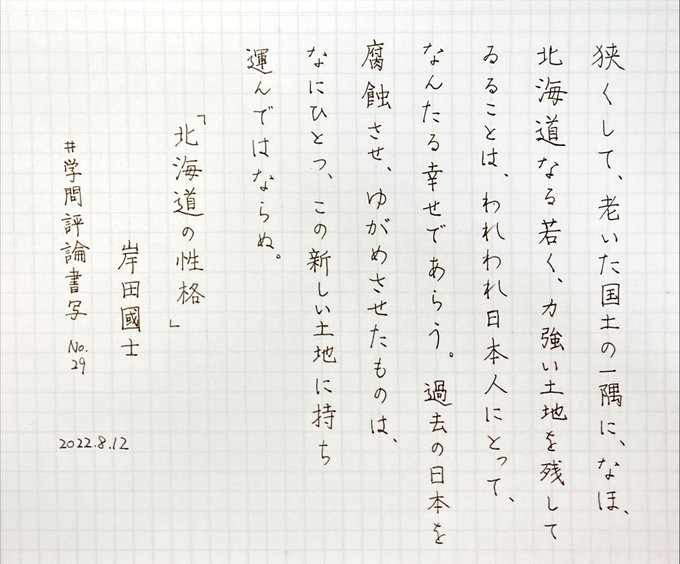 狭くして、老いた国土の一隅に、なほ、
北海道なる若く、力強い土地を残して
ゐることは、われわれ日本人にとって、
なんたる幸せであらう。過去の日本を
腐蝕させ、ゆがめさせたものは、
なにひとつ、この新しい土地に持ち
運んではならぬ。
「北海道の性格」
岸田國士
#学問評論書写 No.29
2022.8.12